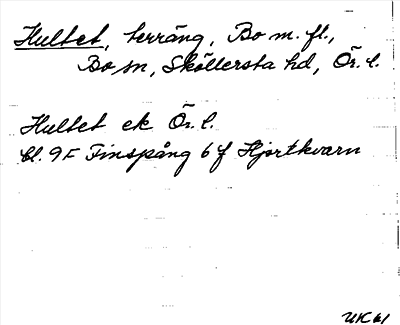 Hultet, terräng, Bo m. fl.,
Bo sn, Sköllersta hd, Ör. l.
Hultet ek Ör. l.
bl. 9F Finspång 6 f Hjortkvarn
UK 61